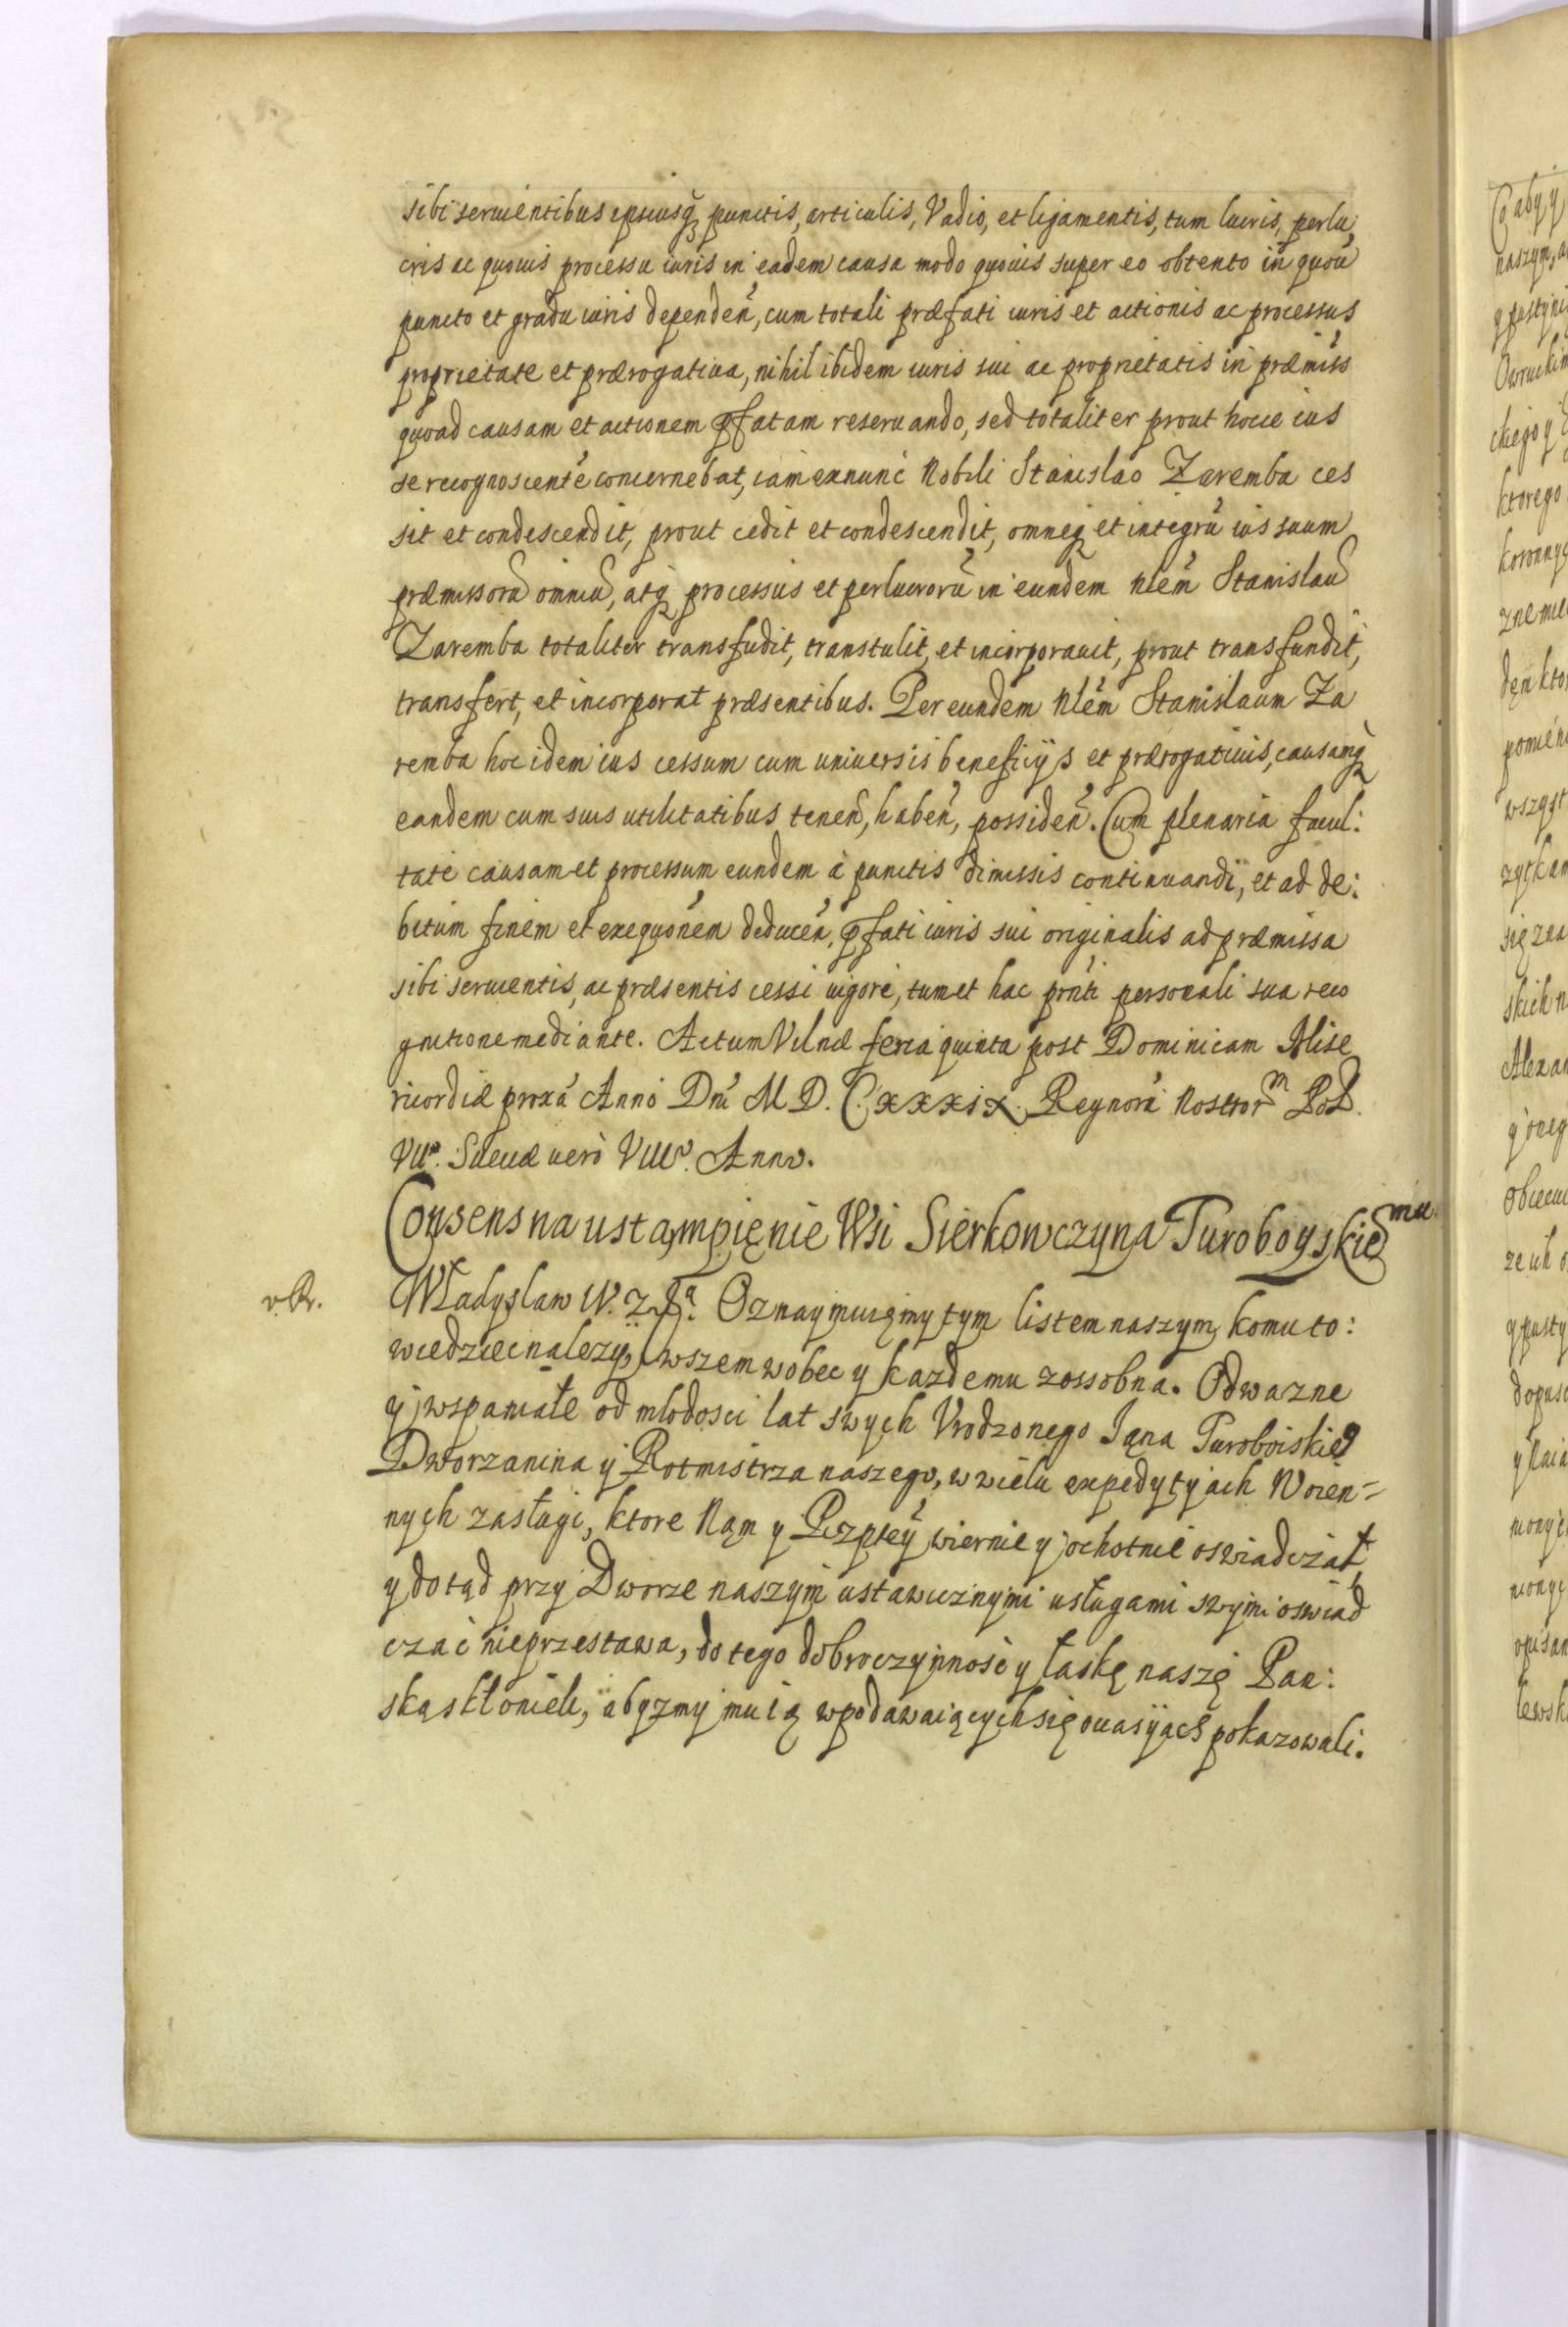 sibi seruientibus ipsiusq3 punctis, articulis, Vadio, et ligamentis, tum lucris, perlu,
cris ac quouis processu iuris in eadem causa modo quouis super eo obtento in quou
puncto et gradu iuris dependeñ, cum totali præfati iuris et actionis ac processus
proprietate et prærogatiua, nihil ibidem iuris sui ac proprietatis in præmiss
quoad causam et actionem pfatam reseruando, sed totaliter prout hocce ius
se recognoscente concernebat, iam exnunc Nobili Stanislao Zaremba ces
sit et condescendit, prout cedit et condescendit, omneq3 et integrũ ius suum
præmissorũ omniũ, atq3 processus et perlucrorũ in eundem Nlem Stanislaũ
Zaremba totaliter transfudit, transtulit, et incorporauit, prout transfundit,
transfert, et incorporat præsentibus. Per eundem Nlem Stanislaum Za
remba hoc idem ius cessum cum uniuersis beneficijs et prærogatiuis, causamq3
eandem cum suis utilitatibus teneñ, habeñ, possideñ. Cum plenaria facul:
tate causam et processum eundem à punctis dimissis continuandi, et ad de:
bitum finem et exequõnem deduceñ, pfati iuris sui originalis ad præmissa
sibi seruientis, ac præsentis cessi uigore, tum et hac pñti personali sua reco
gnitione mediante. Actum Vilnæ feria quinta post Dominicam Mise
ricordiæ proxã Anno Dnĩ M D. C xxxix. Regnorũ Nostror m Pol.
VIIo. Sueciæ uero VIIIo. Anno.
Consens na ustąmpięnie Wsi Sierkowczyna Turoboyskiemu
v. R.
Władysław W. z Ł a. Oznaymuięmy tym listem naszym, komu to:
wiedziec nalezy, wszem wobec y kazdemu zossobna. Odwazne
y wspaniałe od młodosci lat swych Vrodzonego Iąna Turoboiskie
Dworzanina y Rotmistrza naszego, w wielu expedytyiach Woien=
nych zasługi, ktore Nąm y Rzptey wiernie y ochotnie oswiadczał,
y dotąd przy Dworze naszym ustawicznymi usługami swymi oswiad
czać nieprzestawa, do tego dobroczynnosć y łaskę naszę Pan:
ską skłonieli, abyzmy mu ią w podawaiących się ouasyach pokazowali.